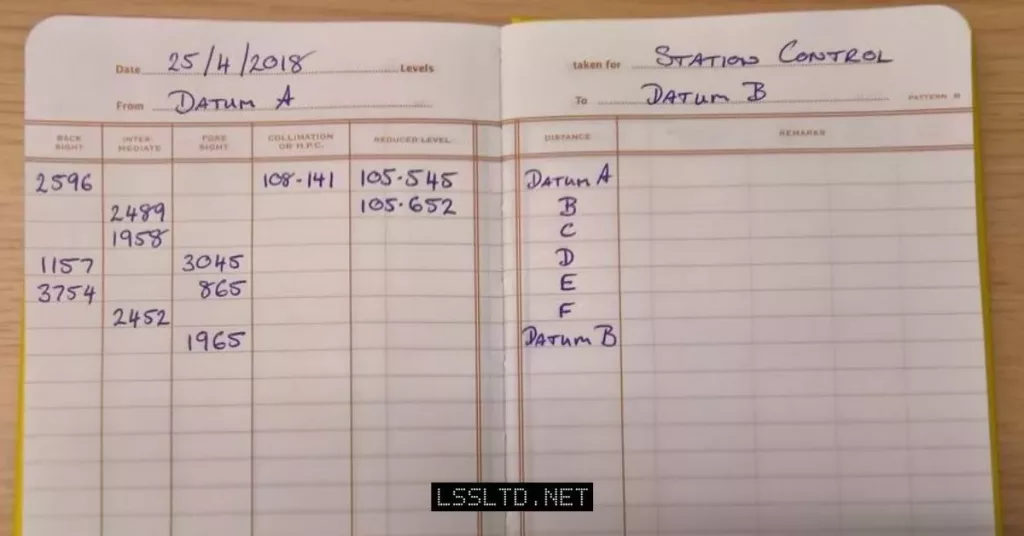 Date 25/4/2018 Levels taken for STATION CONTROL
From DATUM A To DATUM B PATTERN
BACK SIGHT INTER- MEDIATE FORE SIGHT COLLIMATION OR H.P.C. REDUCED LEVEL DISTANCE REMARKS
2596 108-141 105.545 DATUM A
2489 105.652 B
1958 C
1157 3045 D
3754 865 E
2452 F
1965 DATUM B
LSSLTD.NET